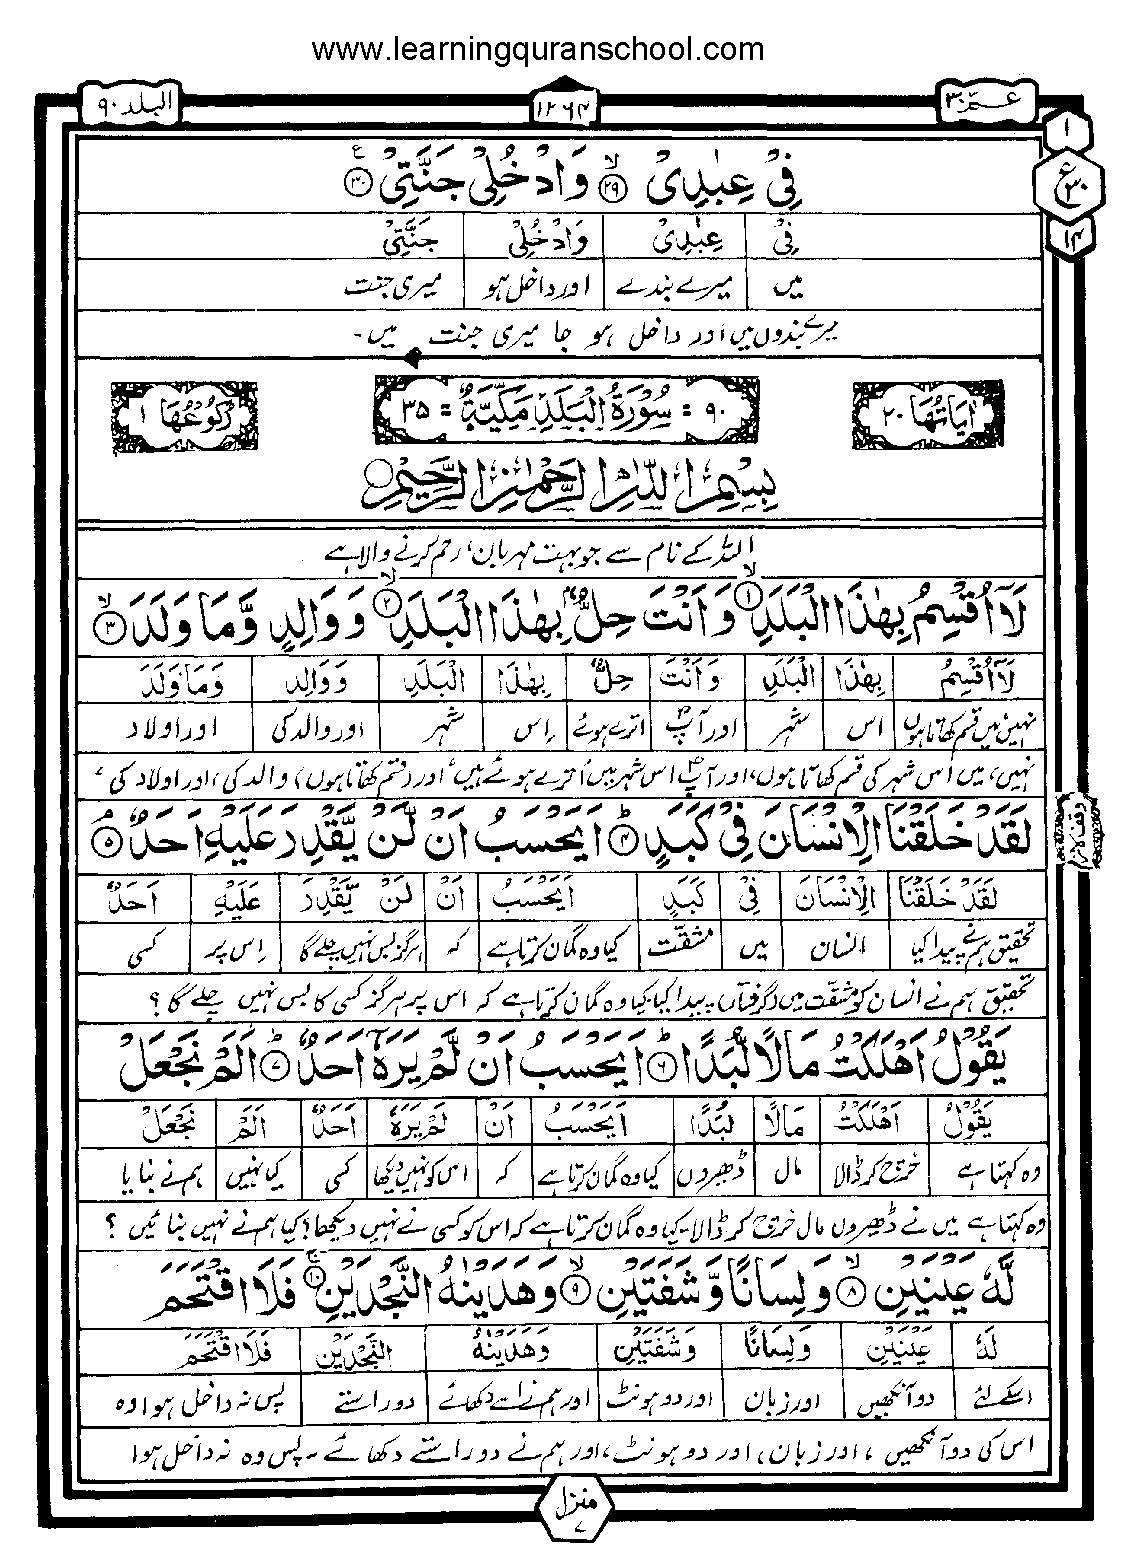 www.learningquranschool.com
عمّ ۳۰
۱۲۶۴
البلد ۹۰
۱
ع
۳۰
۱۴
فِیْ عِبٰدِیْ ﴿۲۹﴾ وَادْخُلِیْ جَنَّتِیْ ﴿۳۰﴾
فِیْ عِبٰدِیْ وَادْخُلِیْ جَنَّتِیْ
میں میرے بندے اور داخل ہو میری جنت
میرے بندوں میں اور داخل ہو جا میری جنت میں۔
اٰیَاتُهَا ۲۰
۹۰ = سُوْرَةُ الْبَلَدِ مَكِّيَّةٌ = ۳۵
رُكُوْعُهَا ۱
بِسْمِ اللّٰهِ الرَّحْمٰنِ الرَّحِيْمِ
اللہ کے نام سے جو بہت مہربان، رحم کرنے والا ہے
لَاۤ اُقْسِمُ بِهٰذَا الْبَلَدِ ﴿۱﴾ وَ اَنْتَ حِلٌّۢ بِهٰذَا الْبَلَدِ ﴿۲﴾ وَ وَالِدٍ وَّمَا وَلَدَ ﴿۳﴾
لَاۤ اُقْسِمُ بِهٰذَا الْبَلَدِ وَ اَنْتَ حِلٌّۢ بِهٰذَا الْبَلَدِ وَ وَالِدٍ وَمَا وَلَدَ
نہیں میں قسم کھاتا ہوں اس شہر اور آپؐ اترے ہوئے اِس شہر اور والد کی اور اولاد
نہیں، میں اس شہر کی قسم کھاتا ہوں، اور آپؐ اس شہر میں اُترے ہوئے ہیں، اور (قسم کھاتا ہوں) والد کی، اور اولاد کی،
لَقَدْ خَلَقْنَا الْاِنْسَانَ فِیْ كَبَدٍ ﴿۴﴾ اَيَحْسَبُ اَنْ لَّنْ يَّقْدِرَ عَلَيْهِ اَحَدٌ ﴿۵﴾
لَقَدْ خَلَقْنَا الْاِنْسَانَ فِیْ كَبَدٍ اَيَحْسَبُ اَنْ لَنْ يَّقْدِرَ عَلَيْهِ اَحَدٌ
تحقیق ہم نے پیدا کیا انسان میں مشقّت کیا وہ گمان کرتا ہے کہ ہرگز بس نہیں چلے گا اِس پر کسی
تحقیق ہم نے انسان کو مشقت میں (گرفتار) پیدا کیا۔ کیا وہ گمان کرتا ہے کہ اس پر ہرگز کسی کا بس نہیں چلے گا؟
يَقُوْلُ اَهْلَكْتُ مَالًا لُّبَدًا ﴿۶﴾ اَيَحْسَبُ اَنْ لَّمْ يَرَهٗۤ اَحَدٌ ﴿۷﴾ اَلَمْ نَجْعَلْ
يَقُوْلُ اَهْلَكْتُ مَالًا لُبَدًا اَيَحْسَبُ اَنْ لَمْ يَرَهٗ اَحَدٌ اَلَمْ نَجْعَلْ
وہ کہتا ہے خرچ کر ڈالا مال ڈھیروں کیا وہ گمان کرتا ہے کہ اس کو نہیں دیکھا کسی کیا نہیں ہم نے بنایا
وہ کہتا ہے میں نے ڈھیروں مال خرچ کر ڈالا۔ کیا وہ گمان کرتا ہے کہ اس کو کسی نے نہیں دیکھا؟ کیا ہم نے نہیں بنائیں؟
لَّهٗ عَيْنَيْنِ ﴿۸﴾ وَلِسَانًا وَّشَفَتَيْنِ ﴿۹﴾ وَهَدَيْنٰهُ النَّجْدَيْنِ ﴿۱۰﴾ فَلَا اقْتَحَمَ
لَهٗ عَيْنَيْنِ وَلِسَانًا وَشَفَتَيْنِ وَهَدَيْنٰهُ النَّجْدَيْنِ فَلَا اقْتَحَمَ
اسکے لئے دو آنکھیں اور زبان اور دو ہونٹ اور ہم نے اسے دکھائے دو راستے پس نہ داخل ہوا وہ
اس کی دو آنکھیں، اور زبان، اور دو ہونٹ، اور ہم نے دو راستے دکھائے۔ پس وہ نہ داخل ہوا
منزل ۷